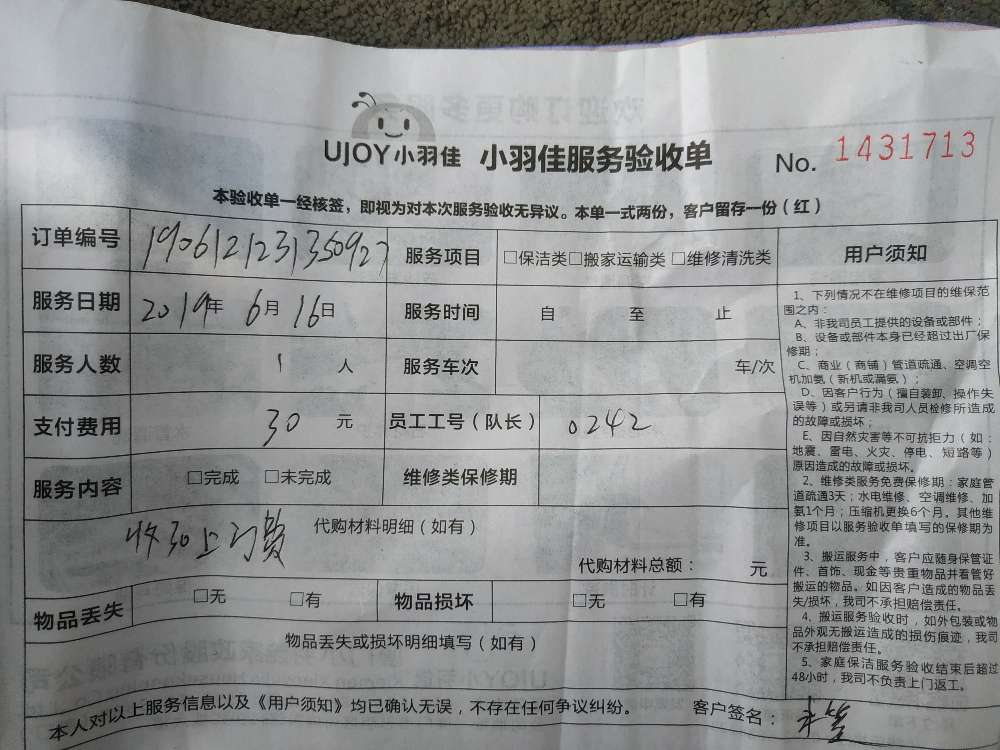 UJOY小羽佳 小羽佳服务验收单 No. 1431713
本验收单一经核签，即视为对本次服务验收无异议。本单一式两份，客户留存一份（红）
订单编号 190612123135092７ 服务项目 □保洁类□搬家运输类 □维修清洗类
服务日期 2019年 6月 16日 服务时间 自 至 止
服务人数 1 人 服务车次 车/次
支付费用 30 元 员工工号（队长） 0242
服务内容 □完成 □未完成 维修类保修期
代购材料明细（如有）
收30上门费
代购材料总额： 元
物品丢失 □无 □有 物品损坏 □无 □有
物品丢失或损坏明细填写（如有）
本人对以上服务信息以及《用户须知》均已确认无误，不存在任何争议纠纷。 客户签名：
用户须知
1、下列情况不在维修项目的维保范
围之内：
A、非我司员工提供的设备或部件；
B、设备或部件本身已经超过出厂保
修期；
C、商业（商铺）管道疏通、空调空
机加氨（新机或漏氨）；
D、因客户行为（擅自装卸、操作失
误等）或另请非我司人员检修所造成
的故障或损坏；
E、因自然灾害等不可抗拒力（如：
地震、雷电、火灾、停电、短路等）
原因造成的故障或损坏。
2、维修类服务免费保修期：家庭管
道疏通3天；水电维修、空调维修、加
氨1个月；压缩机更换6个月。其他维
修项目以服务验收单填写的保修期为
准。
3、搬运服务中，客户应随身保管证
件、首饰、现金等贵重物品并看管好
搬运的物品。如因客户造成的物品丢
失/损坏，我司不承担赔偿责任。
4、搬运服务验收时，如外包装或物
品外观无搬运造成的损伤痕迹，我司
不承担赔偿责任。
5、家庭保洁服务验收结束后超过
48小时，我司不负责上门返工。